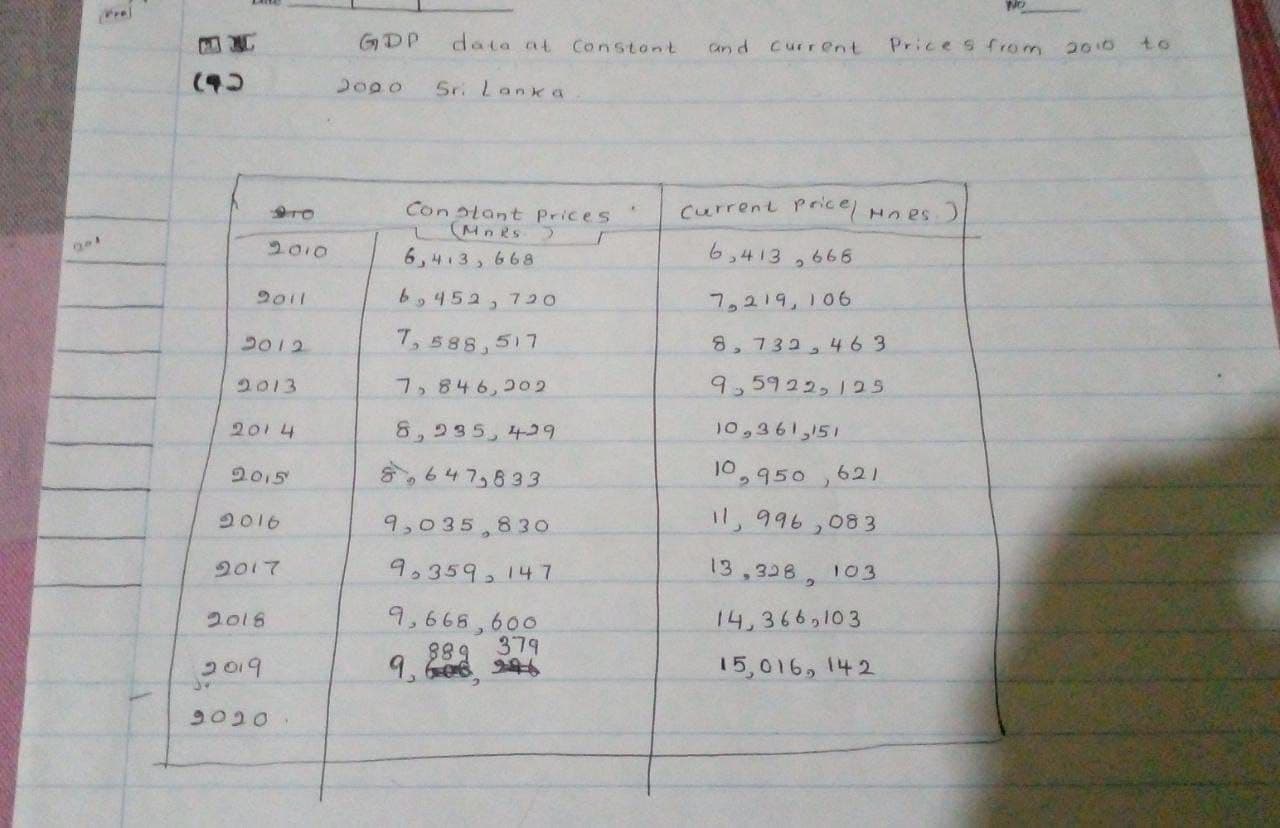 No
GDP data at constant and current Prices from 2010 to
(92) 2020 Sri Lanka.
Constant Prices Current Price (Mnrs.)
(Mnrs)
2010 6,413,668 6,413,668
2011 6,452,720 7,219,106
2012 7,588,517 8,732,463
2013 7,846,202 9,5922,125
2014 8,235,429 10,361,151
2015 8,647,833 10,950,621
2016 9,035,830 11,996,083
2017 9,359,147 13,328,103
2018 9,668,600 14,366,103
2019 9,889,379 15,016,142
2020.